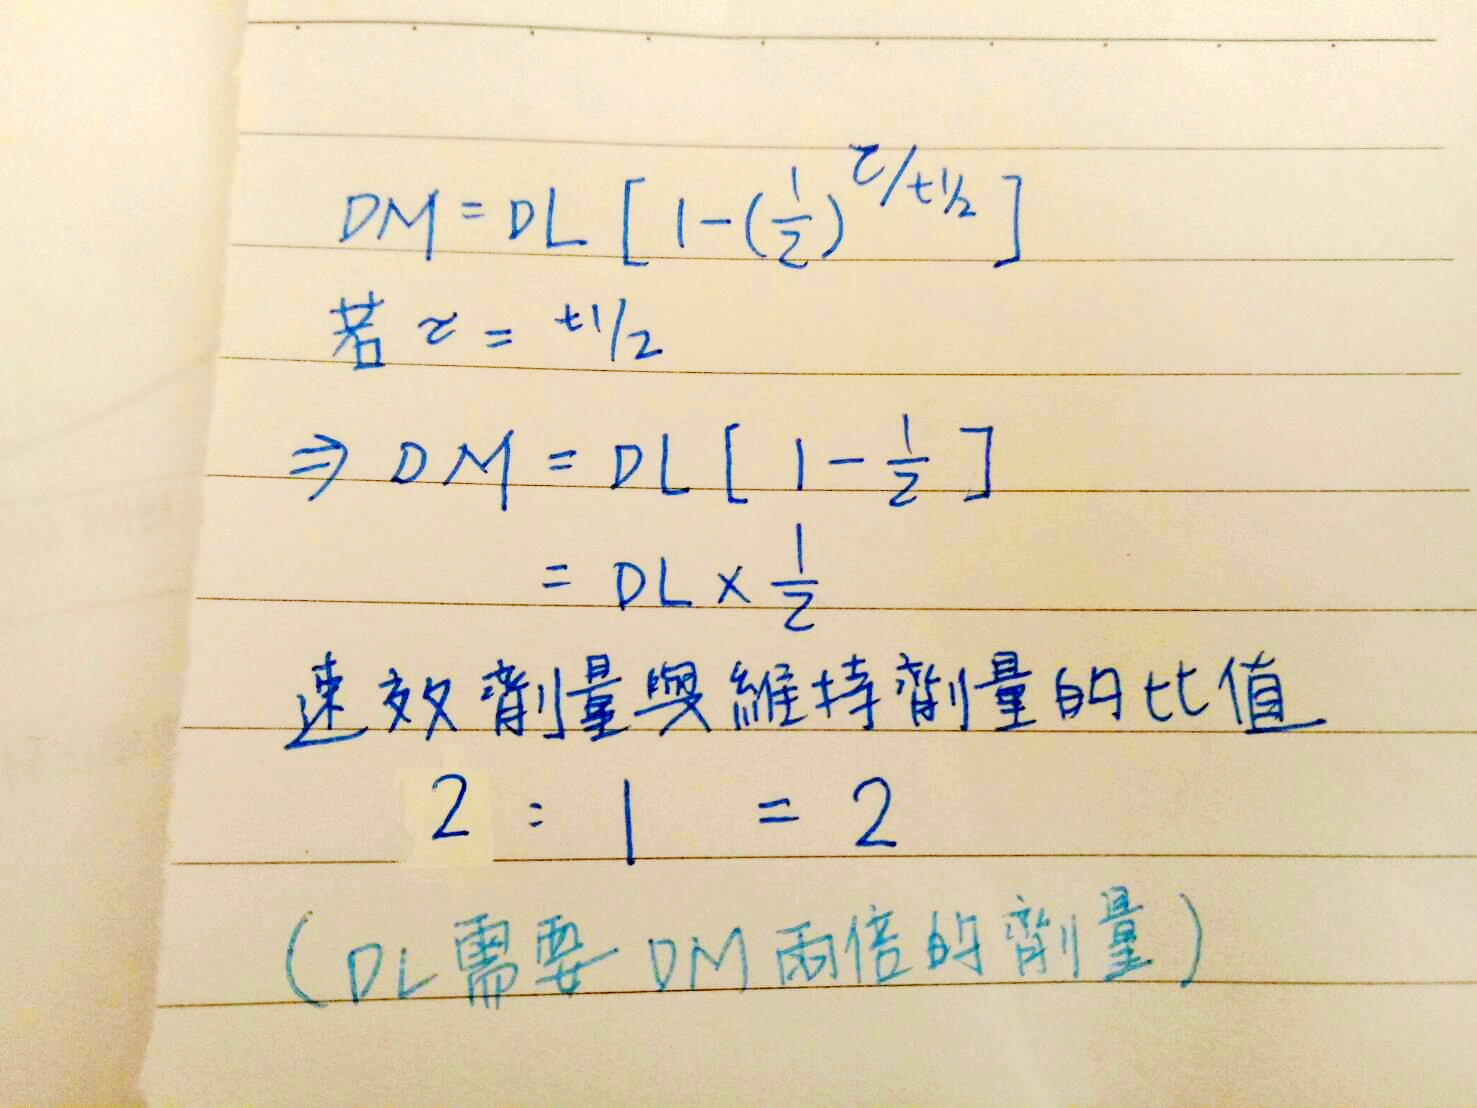 DM = DL [ 1 - (1/2)^τ/t1/2 ]
若 τ = t1/2
⇒ DM = DL [ 1 - 1/2 ]
= DL × 1/2
速效劑量與維持劑量的比值
2 : 1 = 2
(DL需要 DM 兩倍的劑量)